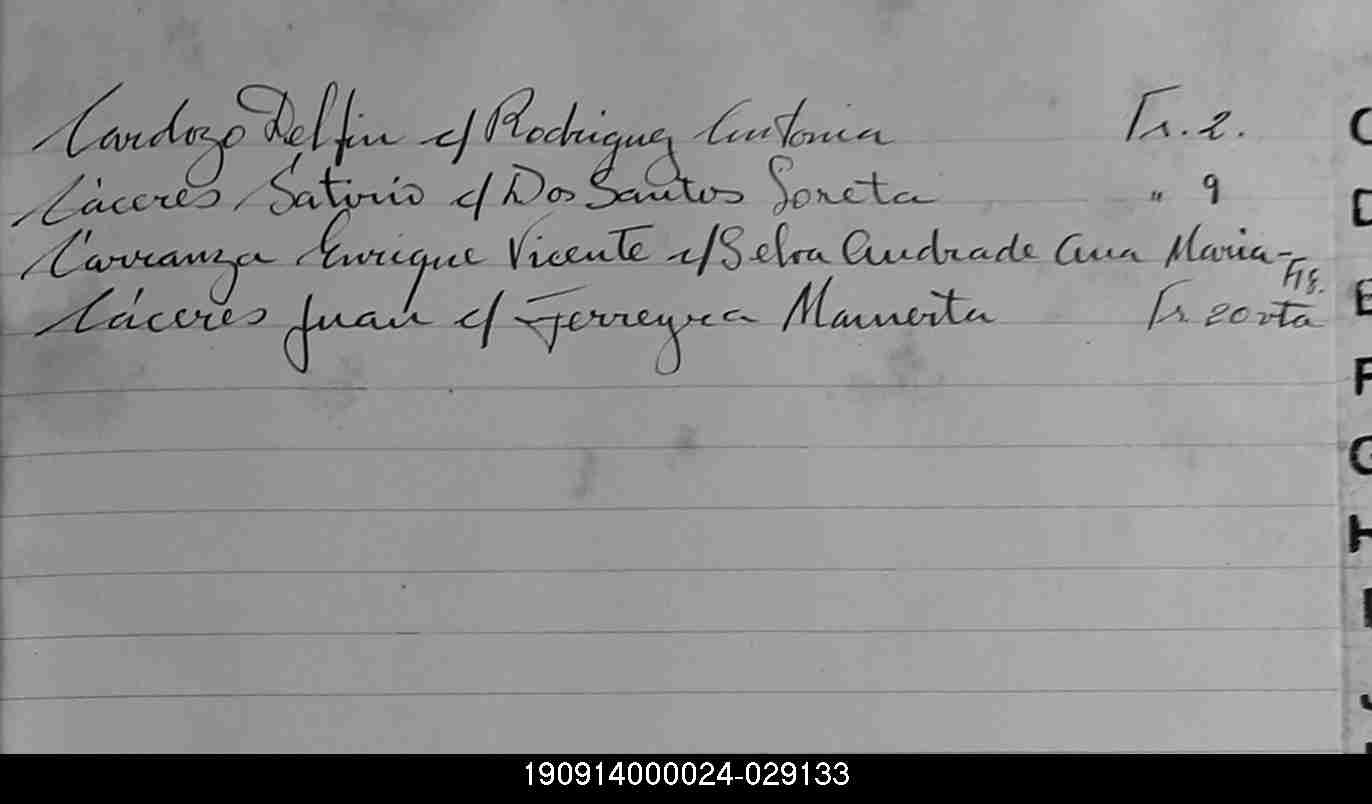 Cardozo Delfin c/ Rodriguez Antonia Fs. 2.
Cáceres, Satirio c/ Dos Santos Loreta " 9
Carranza Enrique Vicente c/ Selva Andrade Ana Maria-
Cáceres Juan c/ Ferreyra Mamerta Fs. 20 vta
C
D
E
F
G
H
I
J
190914000024-029133